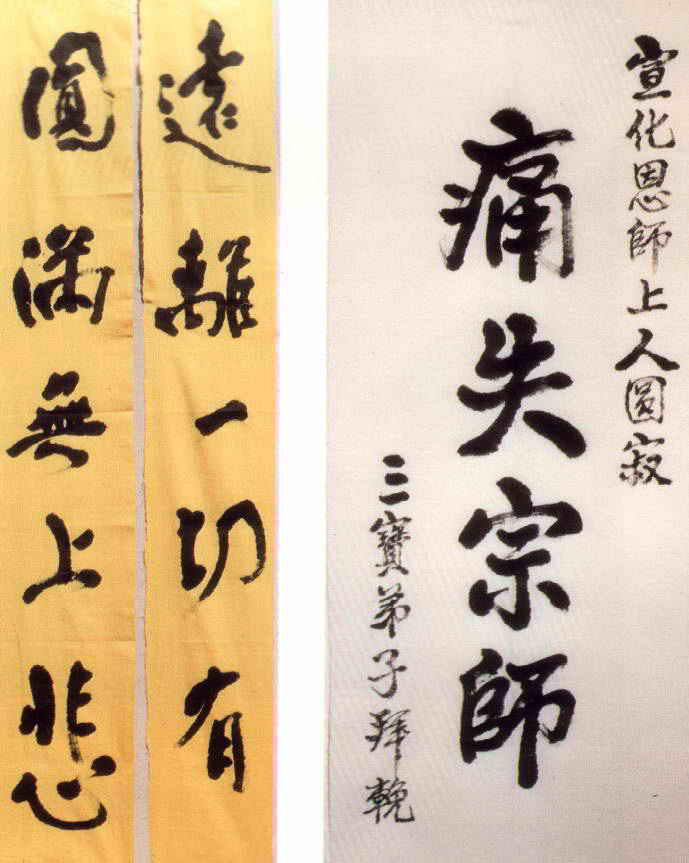 宣化恩師上人圓寂
痛失宗師
三寶弟子拜輓
遠離一切有
圓滿無上悲